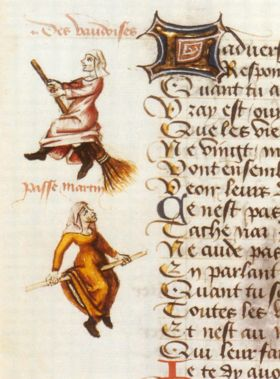 Des vaudoises
Passe Martin
Laduers
Respon
Quant tu a
Vray est ou
Que les vie
Ne vingt m
Vont ensemb
Veoir leurs
Ce nest pas
Ne aude pas
En parlant
Quant tu s
Toutes les
Et nest au
Qui leur fa
Je te dy auo